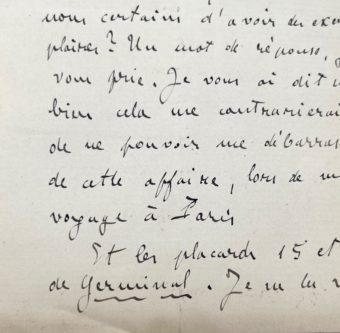 nous certains d'avoir des exem
plaires? Un mot de réponse, je
vous prie. Je vous ai dit
bien cela me contrarierai
de ne pouvoir me débarras
de cette affaire, lors de m
voyage à Paris
Et les placards 15 et
de Germinal. Je ne les